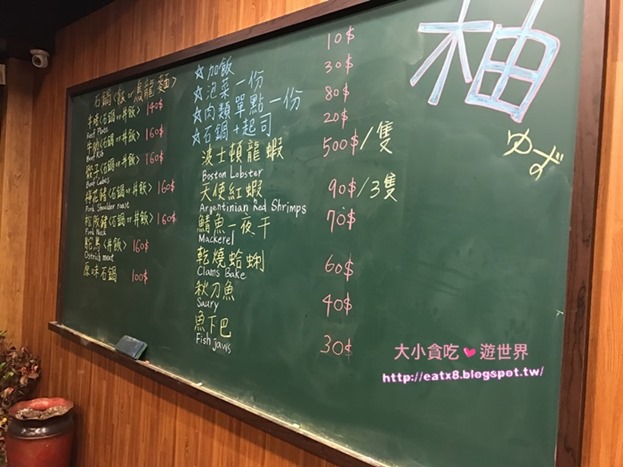 石鍋(飯 or 烏龍麵)
牛培(石鍋 or 丼飯) 140$
Beef Plate
牛肋(石鍋 or 丼飯) 160$
Beef Rib
骰子(石鍋 or 丼飯) 160$
Beef Cubes
梅花豬(石鍋 or 丼飯) 160$
Pork Shoulder roast
松阪豬(石鍋 or 丼飯) 160$
Pork Neck
鴕鳥(丼飯) 160$
Ostrich meat
原味石鍋 100$
☆加飯 10$
☆泡菜一份 30$
☆肉類單點一份 80$
☆石鍋+起司 20$
波士頓龍蝦 500$/隻
Boston Lobster
天使紅蝦 90$/3隻
Argentinian Red Shrimps
鯖魚一夜干 70$
Mackerel
乾燒蛤蜊 60$
Clams Bake
秋刀魚 40$
Saury
魚下巴 30$
Fish jaws
柚
ゆず
大小貪吃❤遊世界
http://eatx8.blogspot.tw/